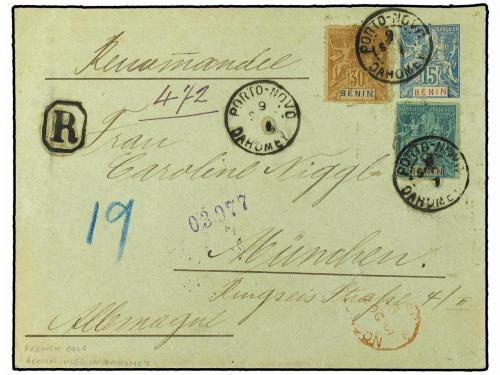 Renommandee
472
R
Frau
Caroline Niggl
02977
19
München.
Ringseis Straße 4/II
Allemagne
FRENCH COLS
BENIN USED IN DAHOMEY
30
BÉNIN
15
BÉNIN
BÉNIN
PORTO-NOVO
9
DAHOMEY
PORTO-NOVO
9
DAHOMEY
PORTO-NOVO
DAHOMEY